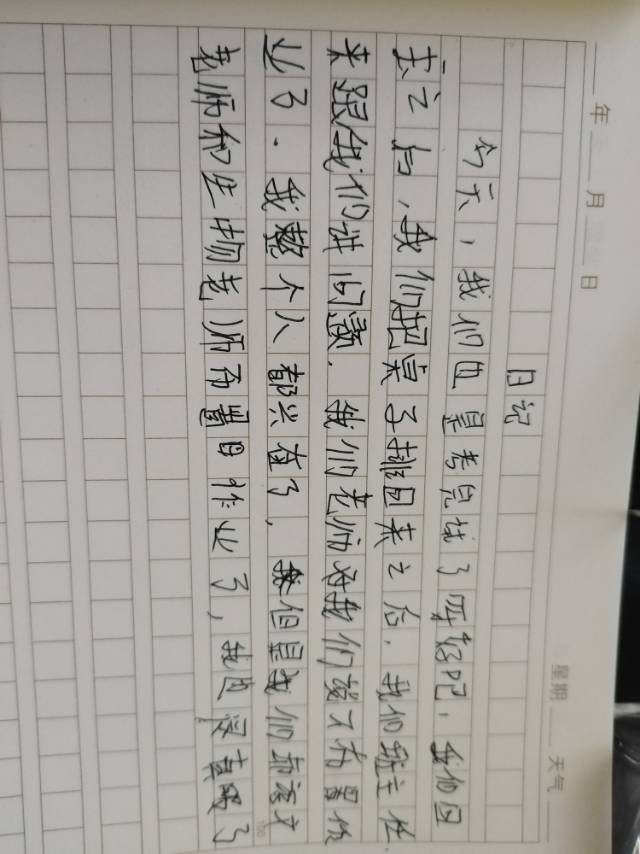 年 月 日 星期 天气
日记
今天，我们也是考完试了呀好吧，我们回
去之后，我们把桌子排回来之后，我们班主任
来跟我们讲问题，我们老师对我们说不布置作
业了。我整个人都兴奋了，但是我们
老师和生物老师布置日作业了，我也没真